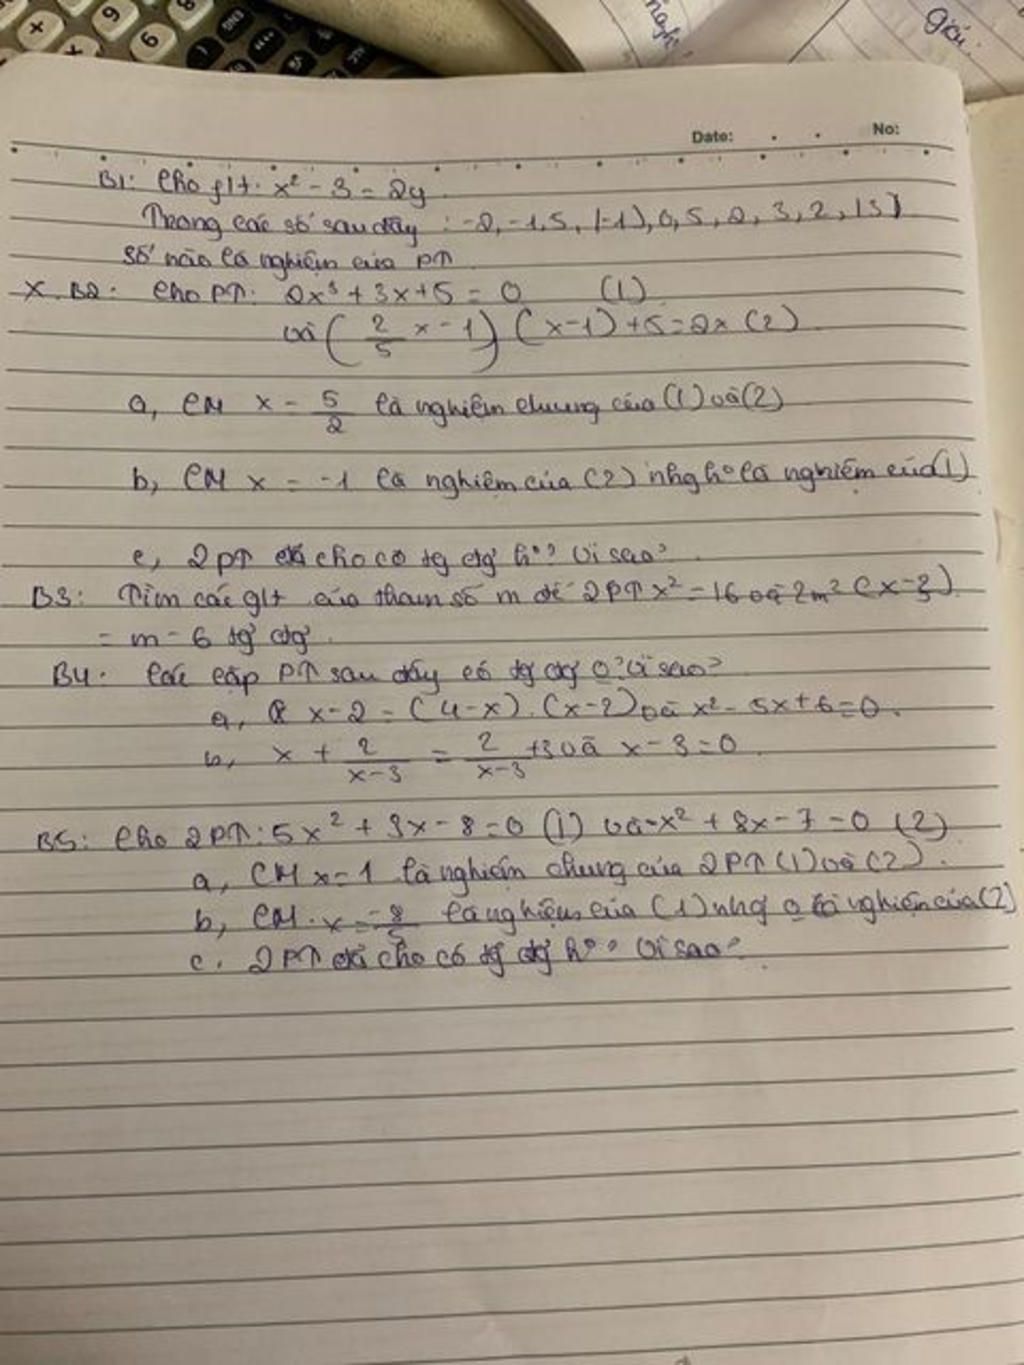 nghi
giải.
Date: No:
B1: Cho ptt. x² - 3 = 2y
Trong các số sau đây : -2, -1,5, (-1), 0,5, 2, 3, 2, |3|
số nào là nghiệm của PT
X. B2: Cho PT: 2x³ + 3x + 5 = 0 (1)
và (2/5 x - 1) (x-1) + 5 = 2x (2)
a, CM x - 5/2 là nghiệm chung của (1) và (2)
b, CM x = -1 là nghiệm của (2) nhg h° là nghiệm của (1)
c, 2 PT đã cho có tg đg h°? Vì sao?
B3: Tìm các gtt của tham số m để 2 PT x² = 16 và 2m² (x-3)
= m - 6 tg đg.
B4: Các cặp PT sau đây có tg đg 0? Vì sao?
a, x-2 = (4-x).(x-2) và x² - 5x + 6 = 0.
b, x + 2/(x-3) = 2/(x-3) + 3 và x-3=0.
B5: Cho 2 PT: 5x² + 3x - 8 = 0 (1) và -x² + 8x - 7 = 0 (2)
a, CM x = 1 là nghiệm chung của 2 PT (1) và (2).
b, CM. x = -8/5 là nghiệm của (1) nhg 0 là nghiệm của (2)
c. 2 PT đã cho có tg đg h°? Vì sao?